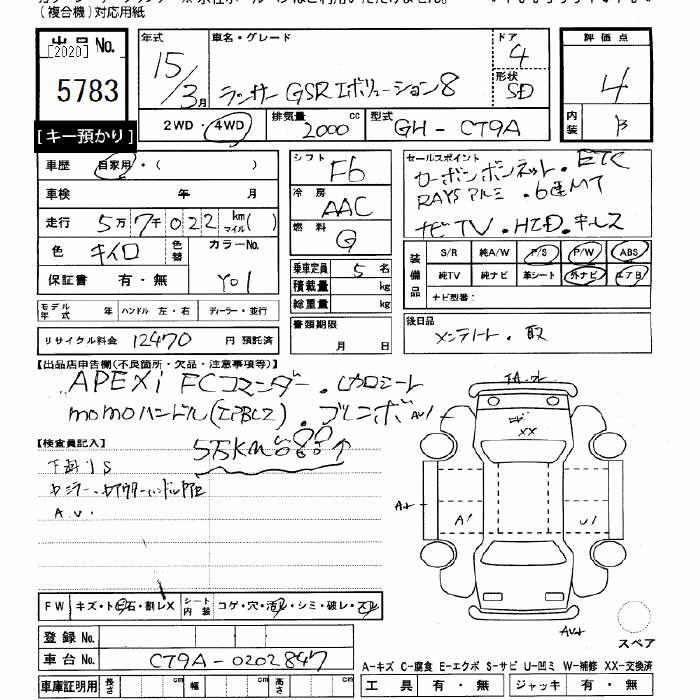 (複合機)対応用紙
出品No.
[2020]
5783
[キー預かり]
年式
15/3月
車名・グレード
ランサー GSRエボリューション8
ドア
4
形状
SD
評価点
4
内装
B
2WD・4WD
排気量 2000 cc
型式 GH-CT9A
車歴 自家用・( )
車検 年 月
走行 5万7千022 km マイル( )
色 キイロ
色替
カラーNo.
Y01
保証書 有・無
シフト F6
冷房 AAC
燃料 G
乗車定員 5 名
積載量 kg
総重量 kg
セールスポイント
カーボンボンネット・ETC
RAYSアルミ・6速MT
ナビTV・HID・キーレス
装備品
S/R 純A/W P/S P/W ABS
純TV 純ナビ 革シート 外ナビ エアB
ナビ型番:
モデル年式 年 ハンドル 左・右 ディーラー・並行
リサイクル料金 12470 円 預託済
書類期限
月 日
後日品
メンテノート・取
【出品店申告欄(不良箇所・欠品・注意事項等)】
APEXi FCコマンダー・レカロシート
momoハンドル(エアBレス)・ブレンボ
【検査員記入】
5万Km
下廻りS
A.U.
FW キズ・トビ石・割レX シート内装 コゲ・穴・汚レ・シミ・破レ・スレ
登録No.
車台No. CT9A-0202847
車庫証明用 長さ cm 幅 cm 高さ cm
XX
AU1
A1
U1
スペア
A-キズ C-腐食 E-エクボ S-サビ U-凹ミ W-補修 XX-交換済
工具 有・無 ジャッキ 有・無